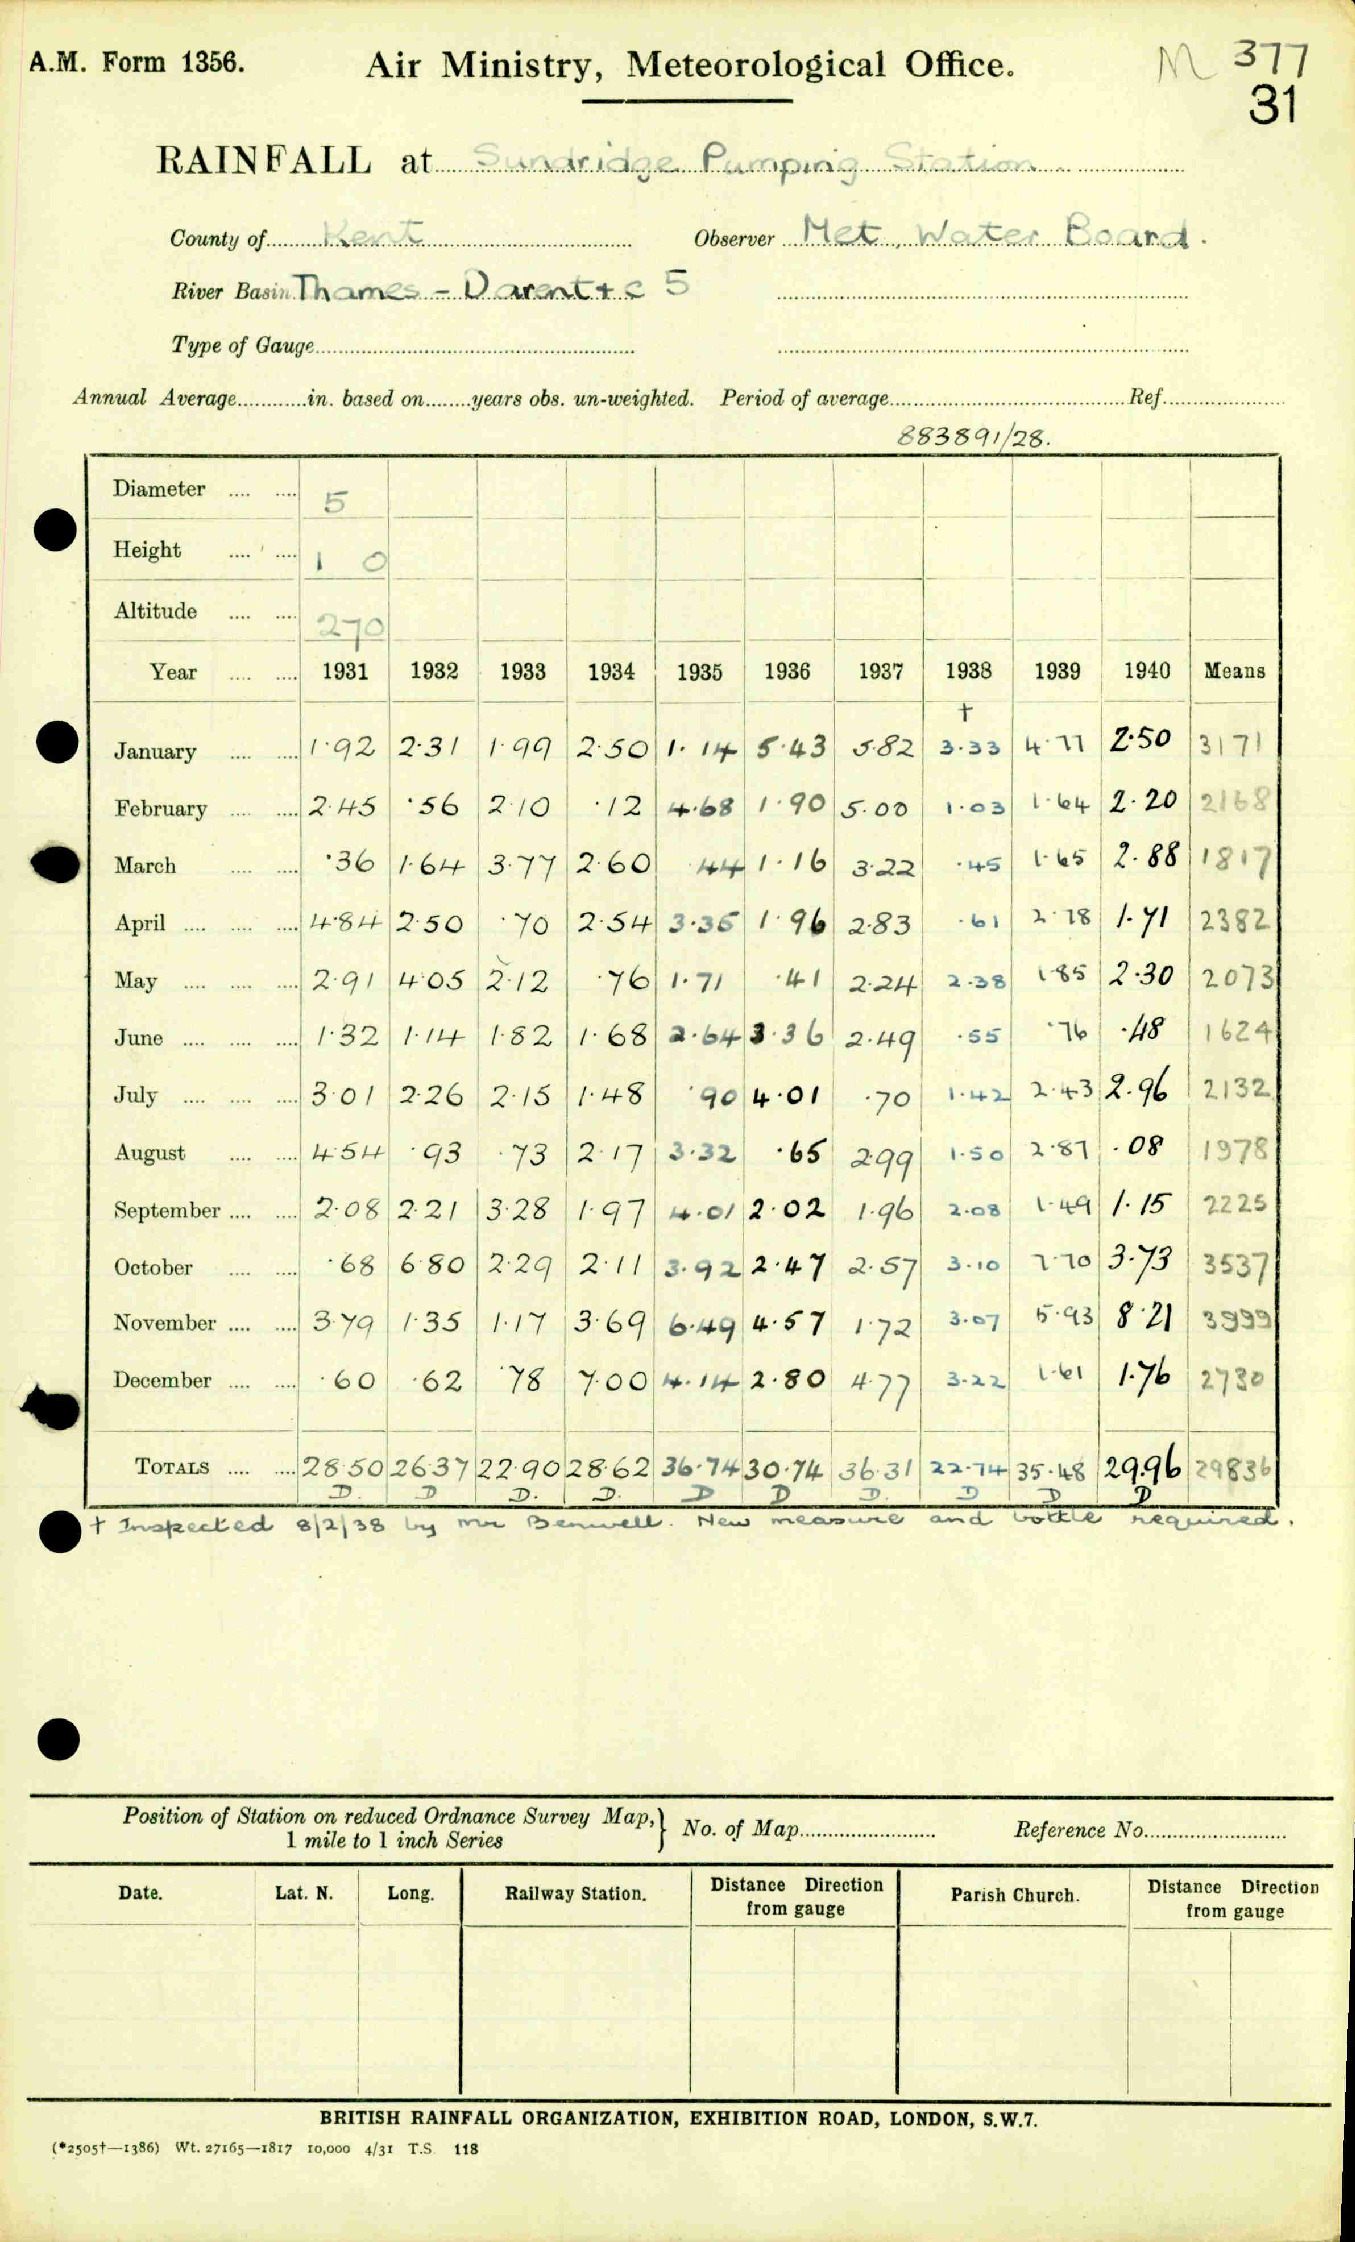 A.M. Form 1356. Air Ministry, Meteorological Office. M 377
31
RAINFALL at Sundridge Pumping Station
County of Kent Observer Met. Water Board.
River Basin Thames - Darent + c 5
Type of Gauge
Annual Average in. based on years obs. un-weighted. Period of average Ref.
883891/28.
Diameter 5
Height 1 0
Altitude 270
Year 1931 1932 1933 1934 1935 1936 1937 1938 1939 1940 Means
†
January 1.92 2.31 1.99 2.50 1.14 5.43 5.82 3.33 4.77 2.50 3171
February 2.45 .56 2.10 .12 4.68 1.90 5.00 1.03 1.64 2.20 2168
March .36 1.64 3.77 2.60 .44 1.16 3.22 .45 1.65 2.88 1817
April 4.84 2.50 .70 2.54 3.35 1.96 2.83 .61 2.78 1.71 2382
May 2.91 4.05 2.12 .76 1.71 .41 2.24 2.38 1.85 2.30 2073
June 1.32 1.14 1.82 1.68 2.64 3.36 2.49 .55 .76 .48 1624
July 3.01 2.26 2.15 1.48 .90 4.01 .70 1.42 2.43 2.96 2132
August 4.54 .93 .73 2.17 3.32 .65 2.99 1.50 2.87 .08 1978
September 2.08 2.21 3.28 1.97 4.01 2.02 1.96 2.08 1.49 1.15 2225
October .68 6.80 2.29 2.11 3.92 2.47 2.57 3.10 7.70 3.73 3537
November 3.79 1.35 1.17 3.69 6.49 4.57 1.72 3.07 5.93 8.21 3999
December .60 .62 .78 7.00 4.14 2.80 4.77 3.22 1.61 1.76 2730
TOTALS 28.50 26.37 22.90 28.62 36.74 30.74 36.31 22.74 35.48 29.96 29836
D. D D. D. D D D. D D D
† Inspected 8/2/38 by Mr Benwell. New measure and bottle required.
Position of Station on reduced Ordnance Survey Map,} No. of Map Reference No.
1 mile to 1 inch Series
Date. Lat. N. Long. Railway Station. Distance Direction from gauge Parish Church. Distance Direction from gauge
BRITISH RAINFALL ORGANIZATION, EXHIBITION ROAD, LONDON, S.W.7.
(*2505†—1386) Wt. 27165—1817 10,000 4/31 T.S. 118